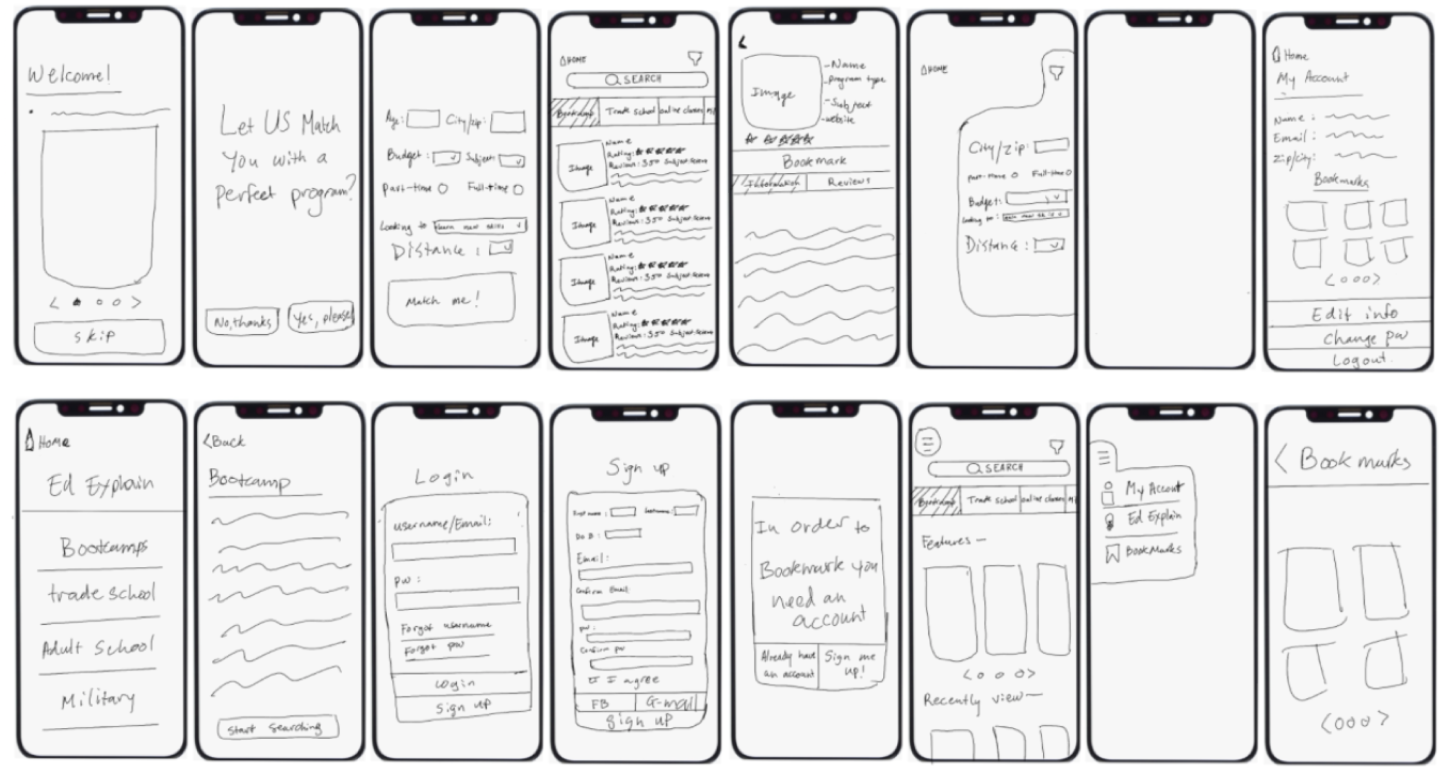 Welcome!
<
>
Skip
Let US Match
You with a
perfect program?
No, thanks
Yes, please
Age:
City/zip:
Budget:
Subject:
Part-time
Full-time
Looking to
learn new skills
Distance:
Match me!
HOME
SEARCH
Bootcamp
Trade school
online classes
Image
Name
Rating:
Reviews: 350 Subject:
Image
Name
Rating:
Reviews: 350 Subject:
Image
Name
Rating:
Reviews: 350 Subject:
Image
Name
Rating:
Reviews: 350 Subject:
<
Image
-Name
-program type
-Subject
-website
Bookmark
Information
Reviews
HOME
City/zip:
part-time
Full-time
Budget:
Looking to:
learn new skills
Distance:
Home
My Account
Name:
Email:
Zip/city:
Bookmarks
<
>
Edit info
Change pw
Logout
Home
Ed Explain
Bootcamps
trade school
Adult School
Military
<Back
Bootcamp
Start Searching
Login
username/Email:
pw:
Forgot username
Forgot pw
Login
Sign up
Sign up
First name:
Lastname:
DoB:
Email:
Confirm Email
pw:
Confirm pw
I agree
FB
G-mail
Sign up
In order to
Bookmark you
need an
account
Already have
an account
Sign me
up!
SEARCH
Bootcamp
Trade school
online classes
Features—
<
>
Recently view—
My Accout
Ed Explain
BookMarks
< Book marks
<
>